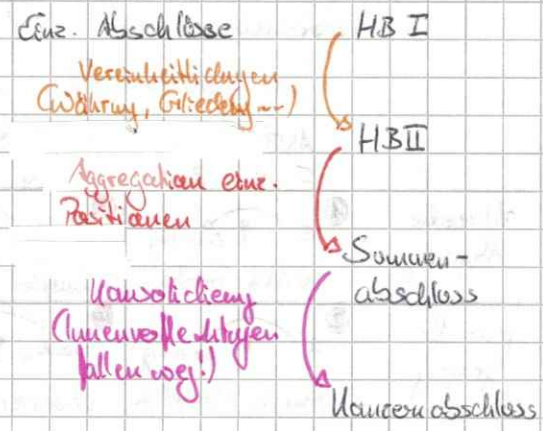 Einz. Abschlüsse
HB I
Vereinheitlichungen
(Währung, Gliederung ...)
HB II
Aggregation einz.
Positionen
Summen-
abschluss
Konsolidierung
(Innenverflechtungen
fallen weg!)
Konzernabschluss